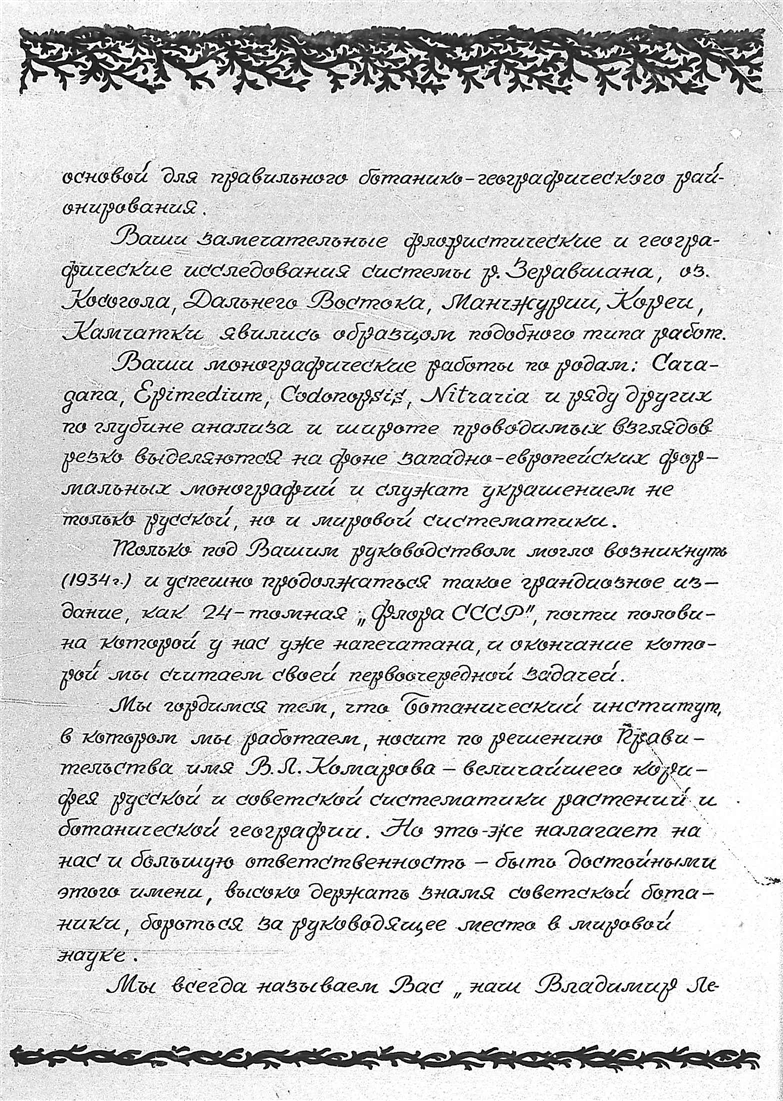 основой для правильного ботанико-географического рай-
онирования.
Ваши замечательные флористические и геогра-
фические исследования системы р. Зеравшана, оз.
Косогола, Дальнего Востока, Манчжурии, Кореи,
Камчатки явились образцом подобного типа работ.
Ваши монографические работы по родам: Cara-
gana, Epimedium, Codonopsis, Nitraria и ряду других
по глубине анализа и широте проводимых взглядов
резко выделяются на фоне западно-европейских фор-
мальных монографий и служат украшением не
только русской, но и мировой систематики.
Только под Вашим руководством могло возникнуть
(1934 г.) и успешно продолжаться такое грандиозное из-
дание, как 24-томная „Флора СССР", почти полови-
на которой у нас уже напечатана, и окончание кото-
рой мы считаем своей первоочередной задачей.
Мы гордимся тем, что Ботанический институт,
в котором мы работаем, носит по решению Прави-
тельства имя В.Л. Комарова – величайшего кори-
фея русской и советской систематики растений и
ботанической географии. Но это-же налагает на
нас и большую ответственность – быть достойными
этого имени, высоко держать знамя советской бота-
ники, бороться за руководящее место в мировой
науке.
Мы всегда называем Вас „наш Владимир Ле-